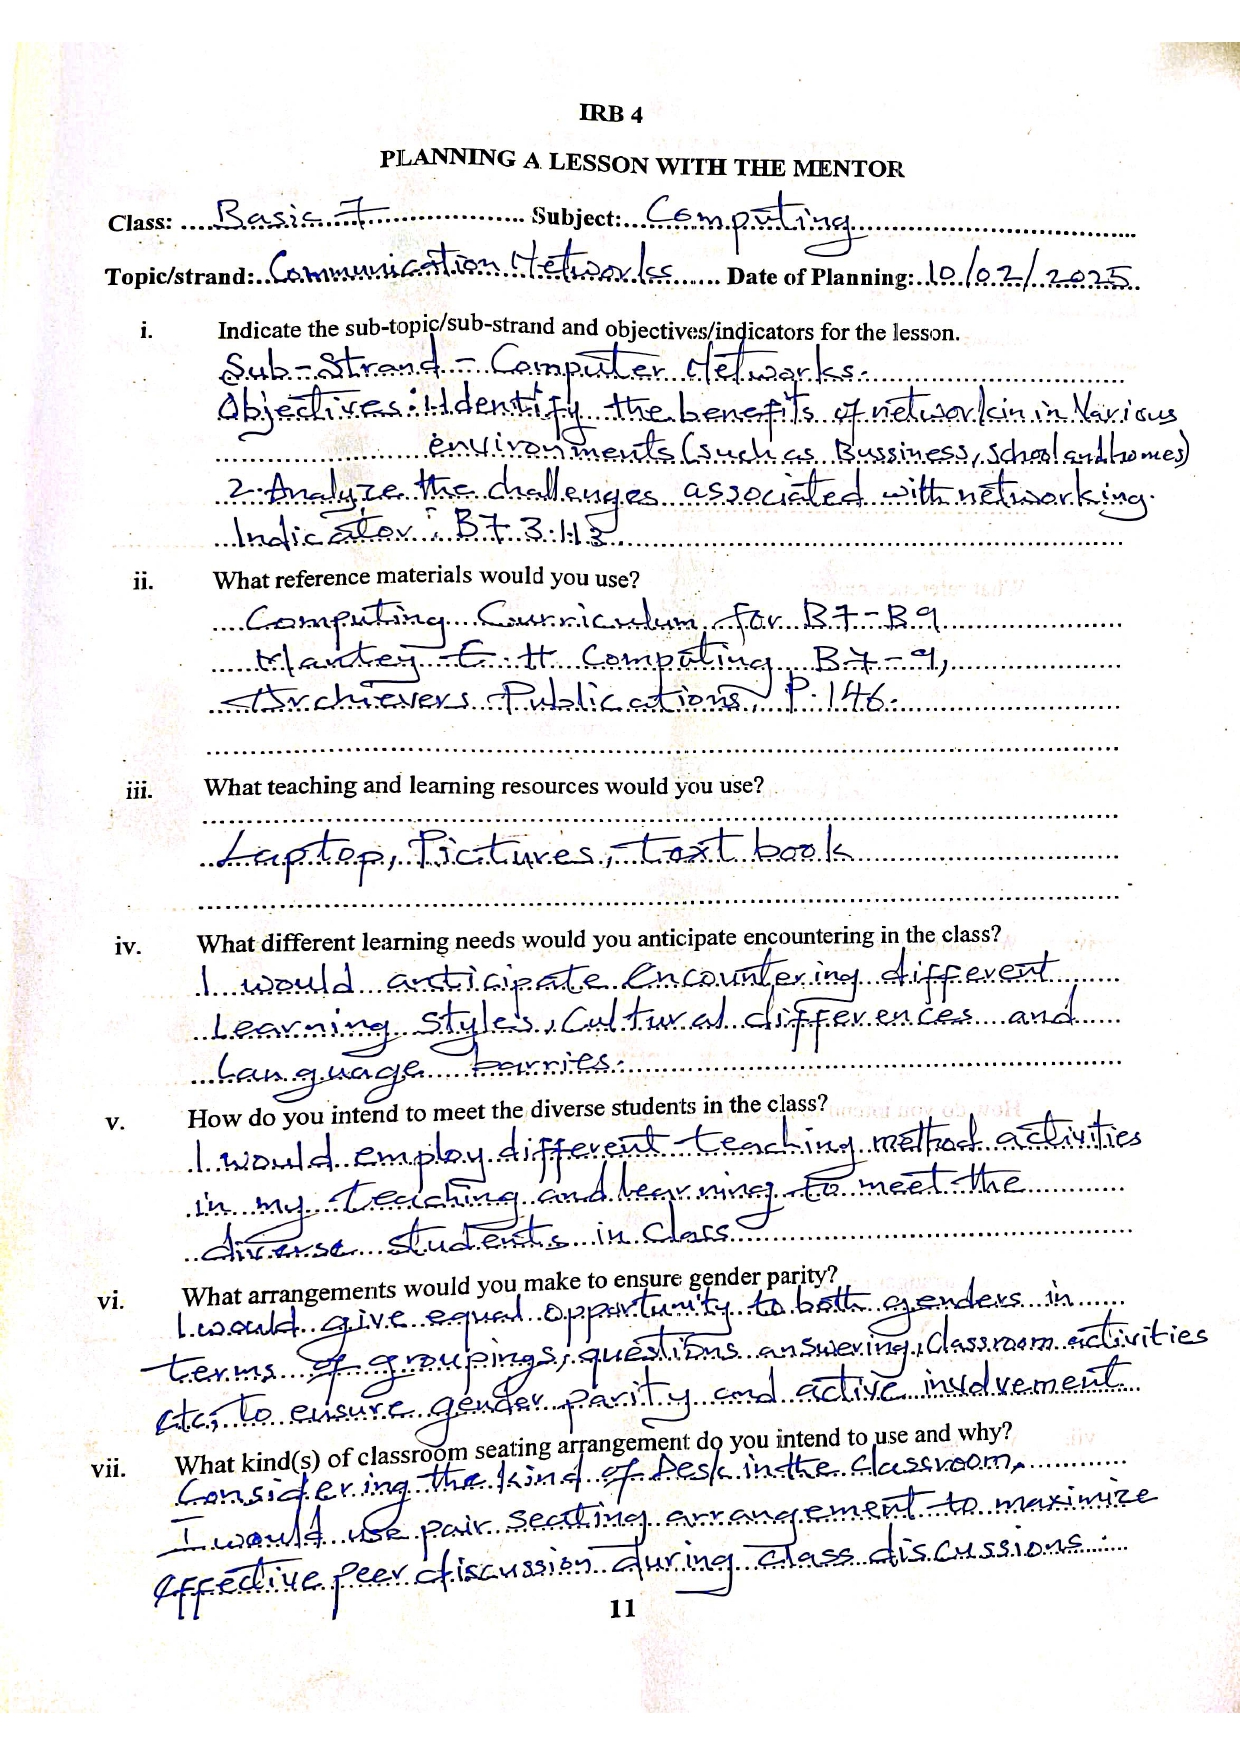 IRB 4
PLANNING A LESSON WITH THE MENTOR
Class: ....Basic 7.................... Subject:...Computing....................
Topic/strand:..Communication Networks...... Date of Planning:..10/02/2025..
i. Indicate the sub-topic/sub-strand and objectives/indicators for the lesson.
Sub-Strand - Computer Networks.
Objectives: 1. Identify the benefits of networkin in Various
environments (such as Bussiness, School and homes)
2. Analyze the challenges associated with networking.
Indicator: B7.3.1.1.3
ii. What reference materials would you use?
Computing Curriculum for B7-B9
Mantey E. H Computing B7-9,
Archievers Publications, P. 146.
iii. What teaching and learning resources would you use?
Laptop, Pictures, text book
iv. What different learning needs would you anticipate encountering in the class?
I would anticipate encountering different
Learning styles, Cultural differences and
Language barries.
v. How do you intend to meet the diverse students in the class?
I would employ different teaching method activities
in my teaching and learning to meet the
diverse students in class
vi. What arrangements would you make to ensure gender parity?
I would give equal opportunity to both genders in
terms of groupings, questions answering, Classroom activities
etc, to ensure gender parity and active involvement
vii. What kind(s) of classroom seating arrangement do you intend to use and why?
Considering the kind of Desk in the classroom,
I would use pair seating arrangement to maximize
effective peer discussion during class discussions.
11